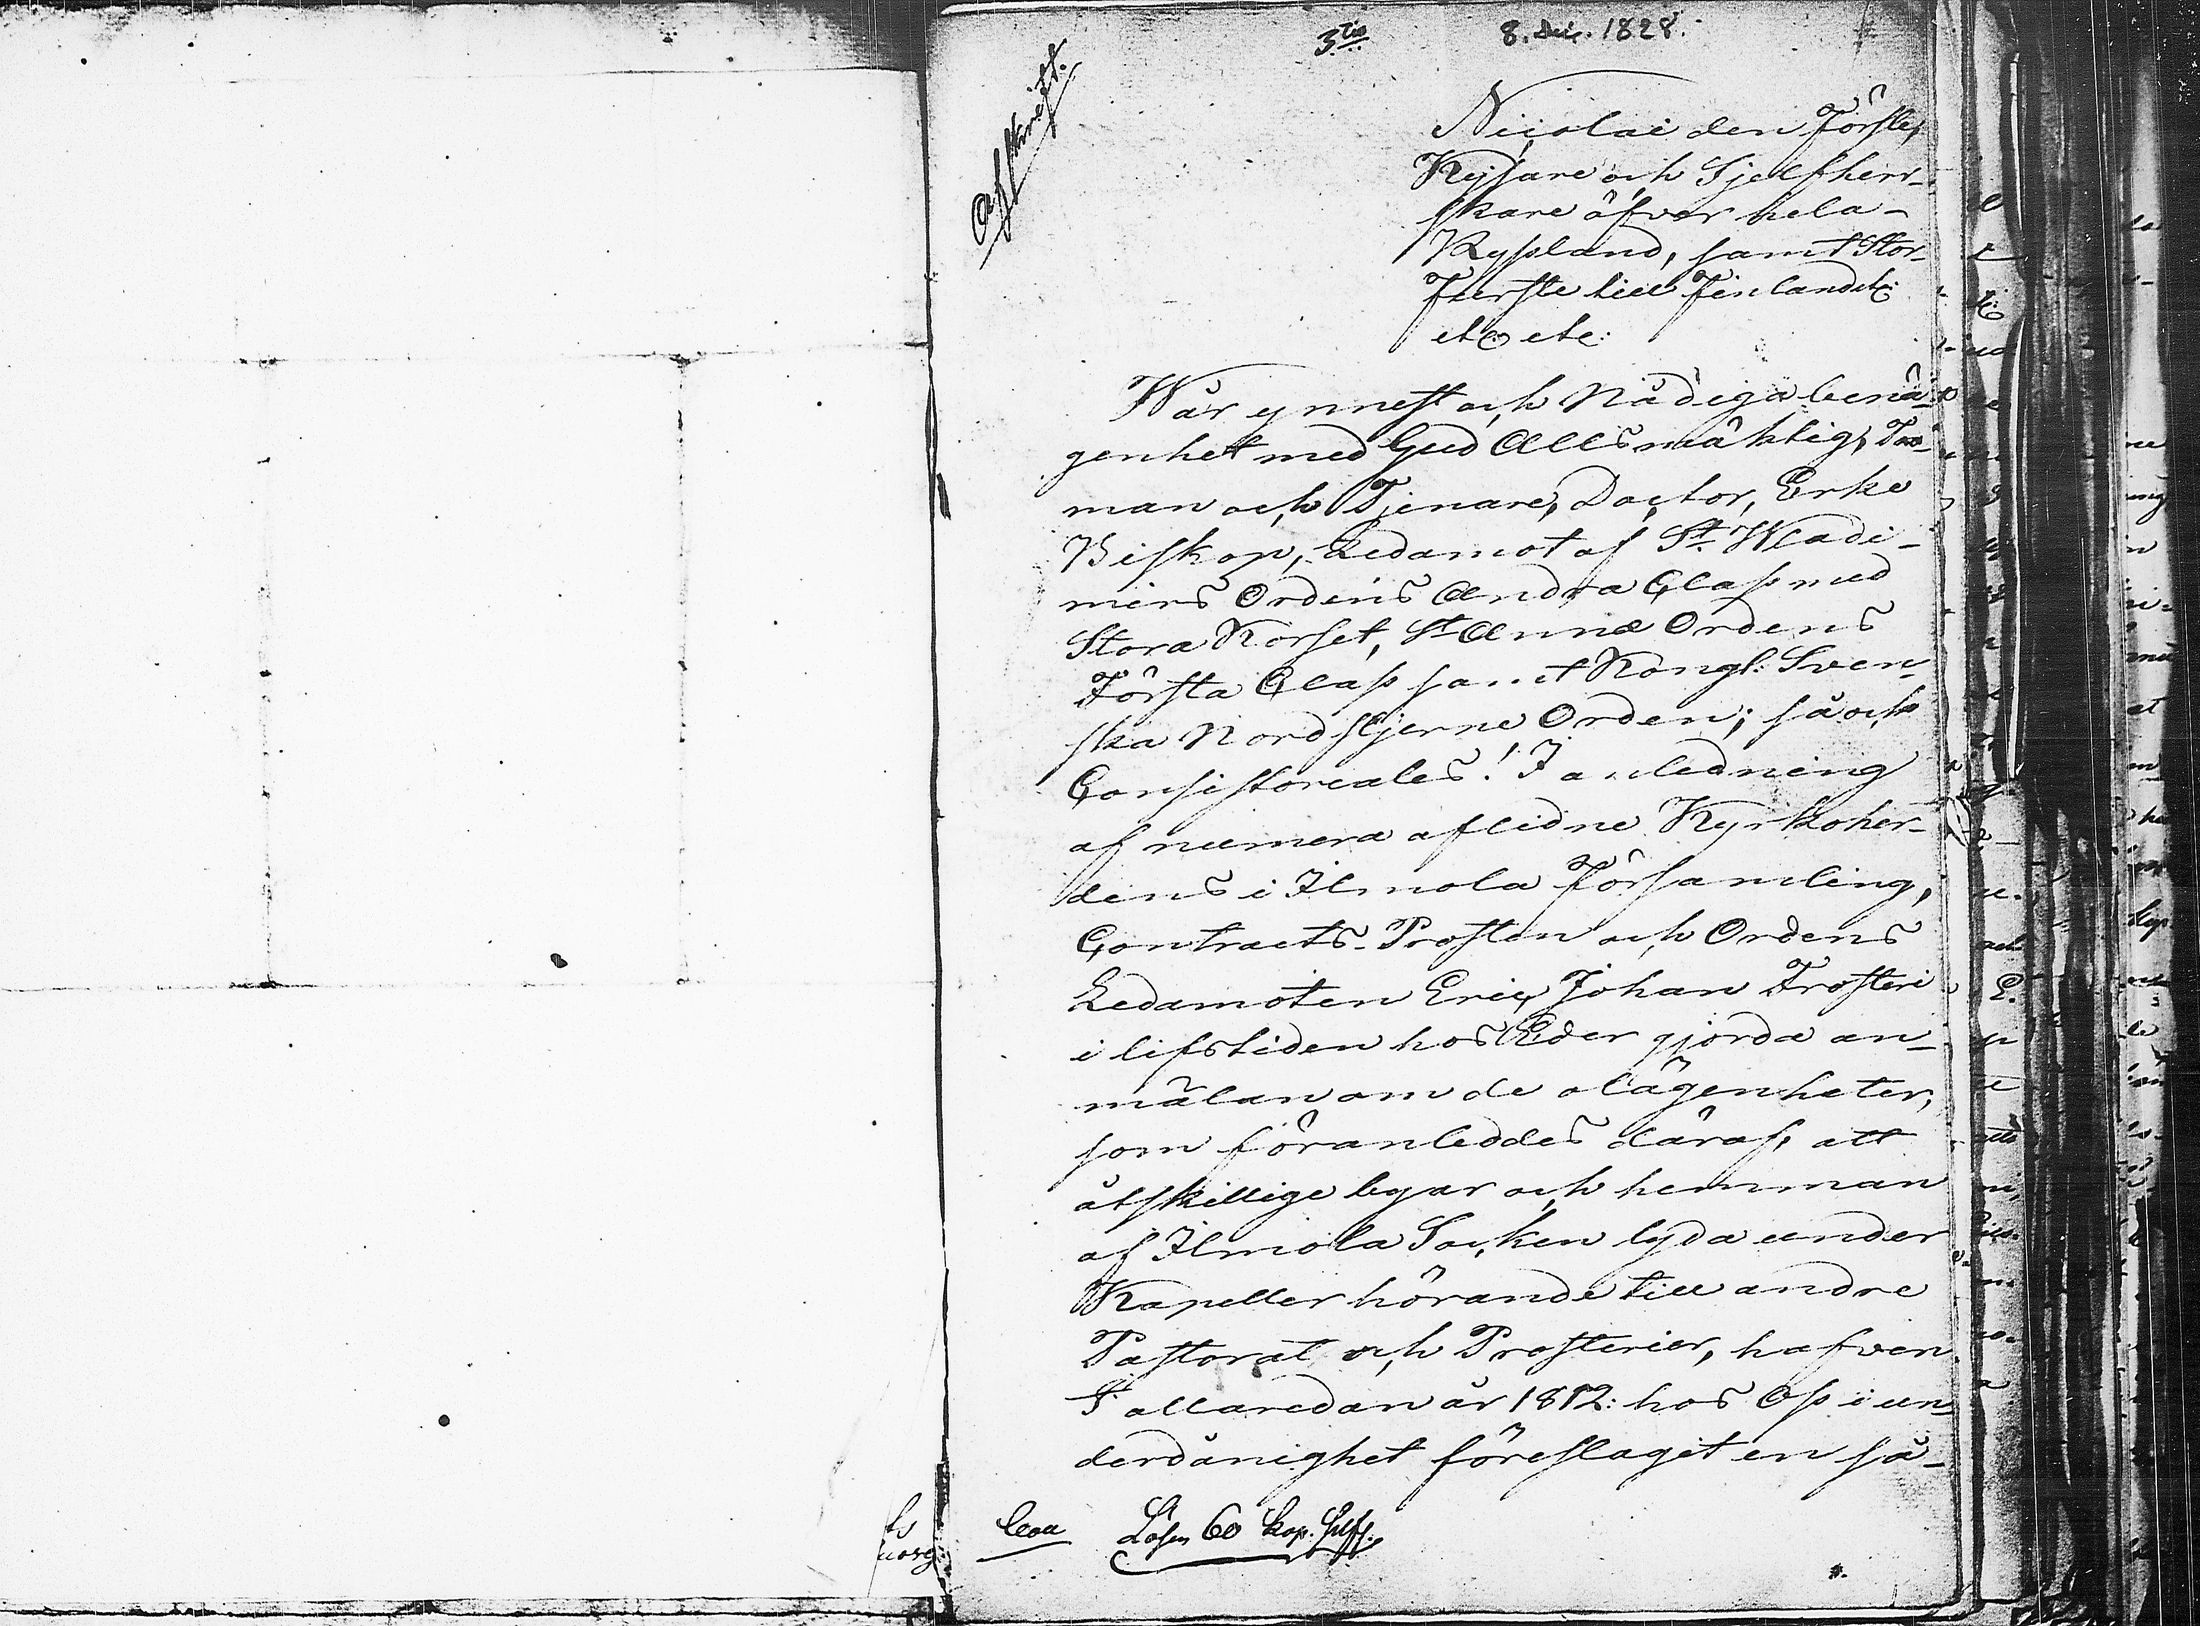 3tio
8. Dec. 1828.
Afskrift.
Nicolai den Förste,
Kejsare och Sjelfherr-
skare öfver hela
Ryssland, samt Stor-
Furste till Finland etc:
etc etc:
Wår ynnest och Nådiga benä-
genhet med Gud Allsmäktig, Tro-
man och Tjenare, Doctor, Erke
Biskop, Ledamot af St. Wladi-
mirs Ordens Andra Class med
Stora Korset, St Annæ Ordens
Första Class samt Kongl. Sven-
ska Nordstjerne Orden; så och
Consistoreales! I anledning
af numera aflidne Kyrkoher-
dens i Ilmola Församling,
Contracts-Prosten och Ordens
Ledamoten Eric Johan Frosteri
i lifstiden hos Eder gjorda an-
mälan om de olägenheter,
som föranleddes däraf, att
åtskillige byar och hemman
af Ilmola Socken lyda under
Kapeller hörande till andre
Pastorat och Prosterier, hafven
I allaredan år 1812: hos Oss i un-
derdånighet föreslagit en så-
Lösen 60 kop. Silf.